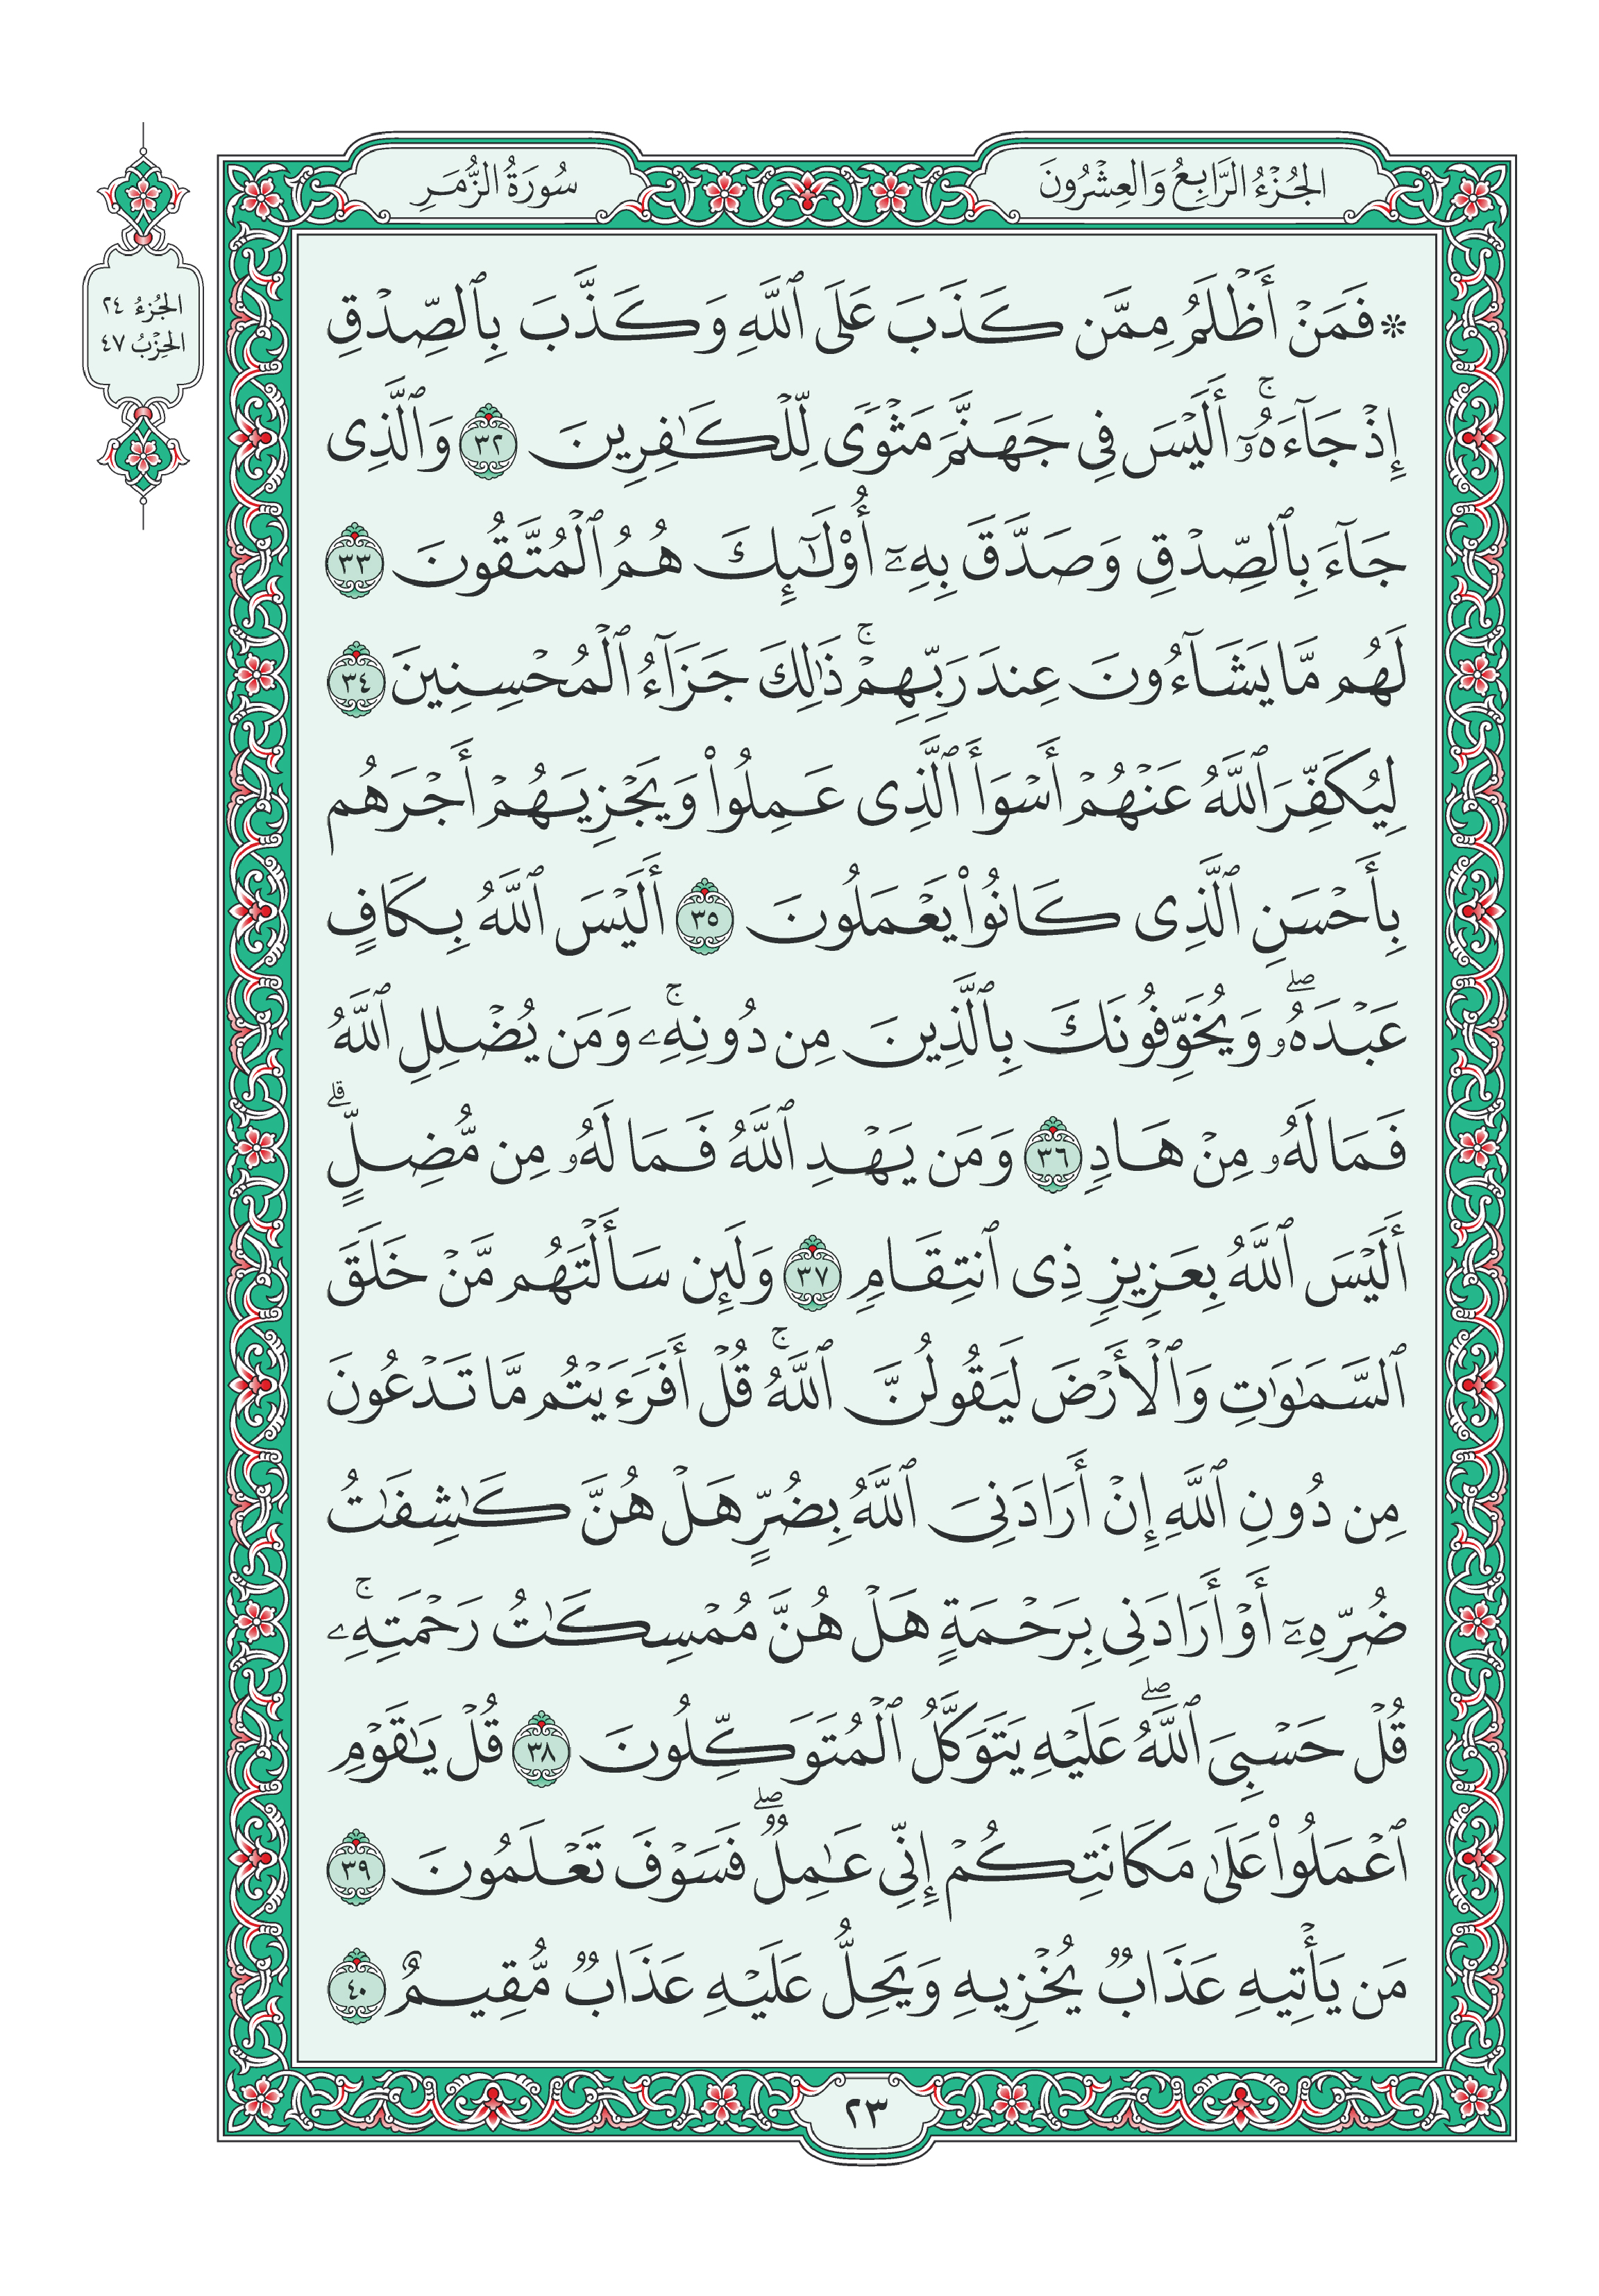 الجُزْءُ الرَّابِعُ وَالعِشْرُونَ
سُورَةُ الزُّمَرِ
الجُزءُ ٢٤
الحِزْبُ ٤٧
۞ فَمَنۡ أَظۡلَمُ مِمَّن كَذَبَ عَلَى ٱللَّهِ وَكَذَّبَ بِٱلصِّدۡقِ
إِذۡ جَآءَهُۥٓۚ أَلَيۡسَ فِي جَهَنَّمَ مَثۡوٗى لِّلۡكَٰفِرِينَ ٣٢ وَٱلَّذِي
جَآءَ بِٱلصِّدۡقِ وَصَدَّقَ بِهِۦٓ أُوْلَٰٓئِكَ هُمُ ٱلۡمُتَّقُونَ ٣٣
لَهُم مَّا يَشَآءُونَ عِندَ رَبِّهِمۡۚ ذَٰلِكَ جَزَآءُ ٱلۡمُحۡسِنِينَ ٣٤
لِيُكَفِّرَ ٱللَّهُ عَنۡهُمۡ أَسۡوَأَ ٱلَّذِي عَمِلُواْ وَيَجۡزِيَهُمۡ أَجۡرَهُم
بِأَحۡسَنِ ٱلَّذِي كَانُواْ يَعۡمَلُونَ ٣٥ أَلَيۡسَ ٱللَّهُ بِكَافٍ
عَبۡدَهُۥۖ وَيُخَوِّفُونَكَ بِٱلَّذِينَ مِن دُونِهِۦۚ وَمَن يُضۡلِلِ ٱللَّهُ
فَمَا لَهُۥ مِنۡ هَادٖ ٣٦ وَمَن يَهۡدِ ٱللَّهُ فَمَا لَهُۥ مِن مُّضِلٍّۗ
أَلَيۡسَ ٱللَّهُ بِعَزِيزٖ ذِي ٱنتِقَامٖ ٣٧ وَلَئِن سَأَلۡتَهُم مَّنۡ خَلَقَ
ٱلسَّمَٰوَٰتِ وَٱلۡأَرۡضَ لَيَقُولُنَّ ٱللَّهُۚ قُلۡ أَفَرَءَيۡتُم مَّا تَدۡعُونَ
مِن دُونِ ٱللَّهِ إِنۡ أَرَادَنِيَ ٱللَّهُ بِضُرٍّ هَلۡ هُنَّ كَٰشِفَٰتُ
ضُرِّهِۦٓ أَوۡ أَرَادَنِي بِرَحۡمَةٍ هَلۡ هُنَّ مُمۡسِكَٰتُ رَحۡمَتِهِۦۚ
قُلۡ حَسۡبِيَ ٱللَّهُۖ عَلَيۡهِ يَتَوَكَّلُ ٱلۡمُتَوَكِّلُونَ ٣٨ قُلۡ يَٰقَوۡمِ
ٱعۡمَلُواْ عَلَىٰ مَكَانَتِكُمۡ إِنِّي عَٰمِلٞۖ فَسَوۡفَ تَعۡلَمُونَ ٣٩
مَن يَأۡتِيهِ عَذَابٞ يُخۡزِيهِ وَيَحِلُّ عَلَيۡهِ عَذَابٞ مُّقِيمٌ ٤٠
٢٣